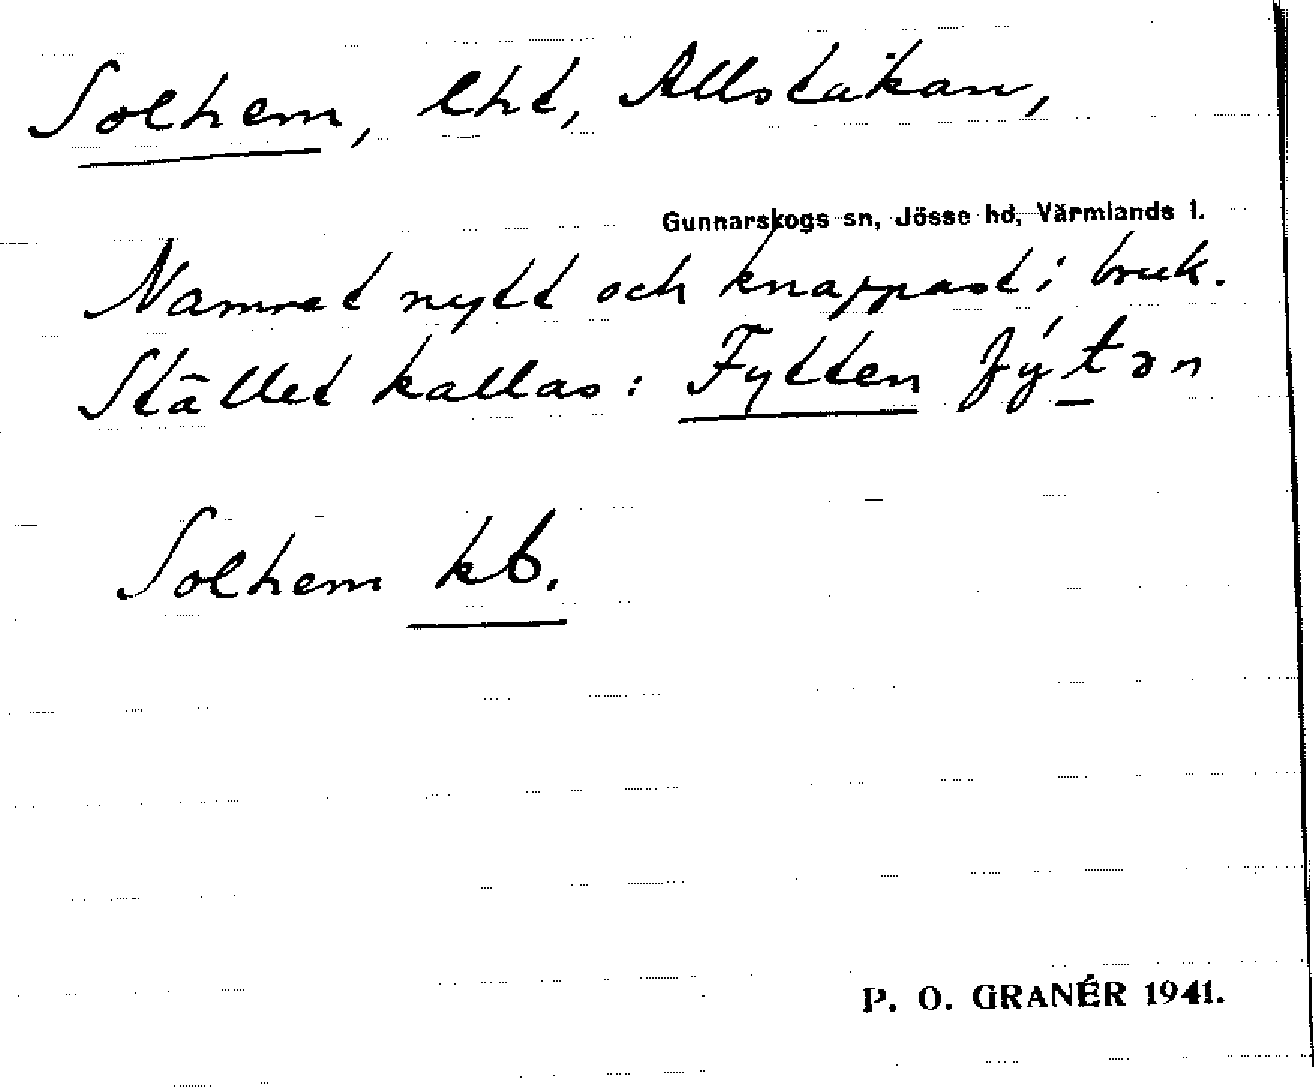 Solhem, lht, Allstakan,
Gunnarskogs sn, Jösse hd, Värmlands l.
Namnet nytt och knappast i bruk.
Stället kallas: Fytten fýtən
Solhem kb.
P. O. GRANÉR 1941.